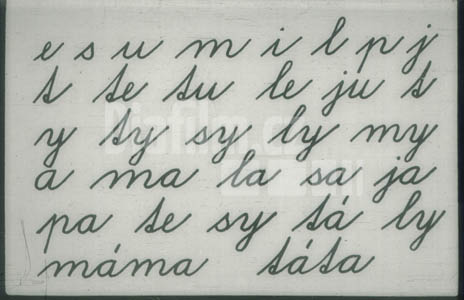 e s u m i l p j
t te tu le ju t
y ty sy ly my
a ma la sa ja
pa te sy tá ly
máma táta